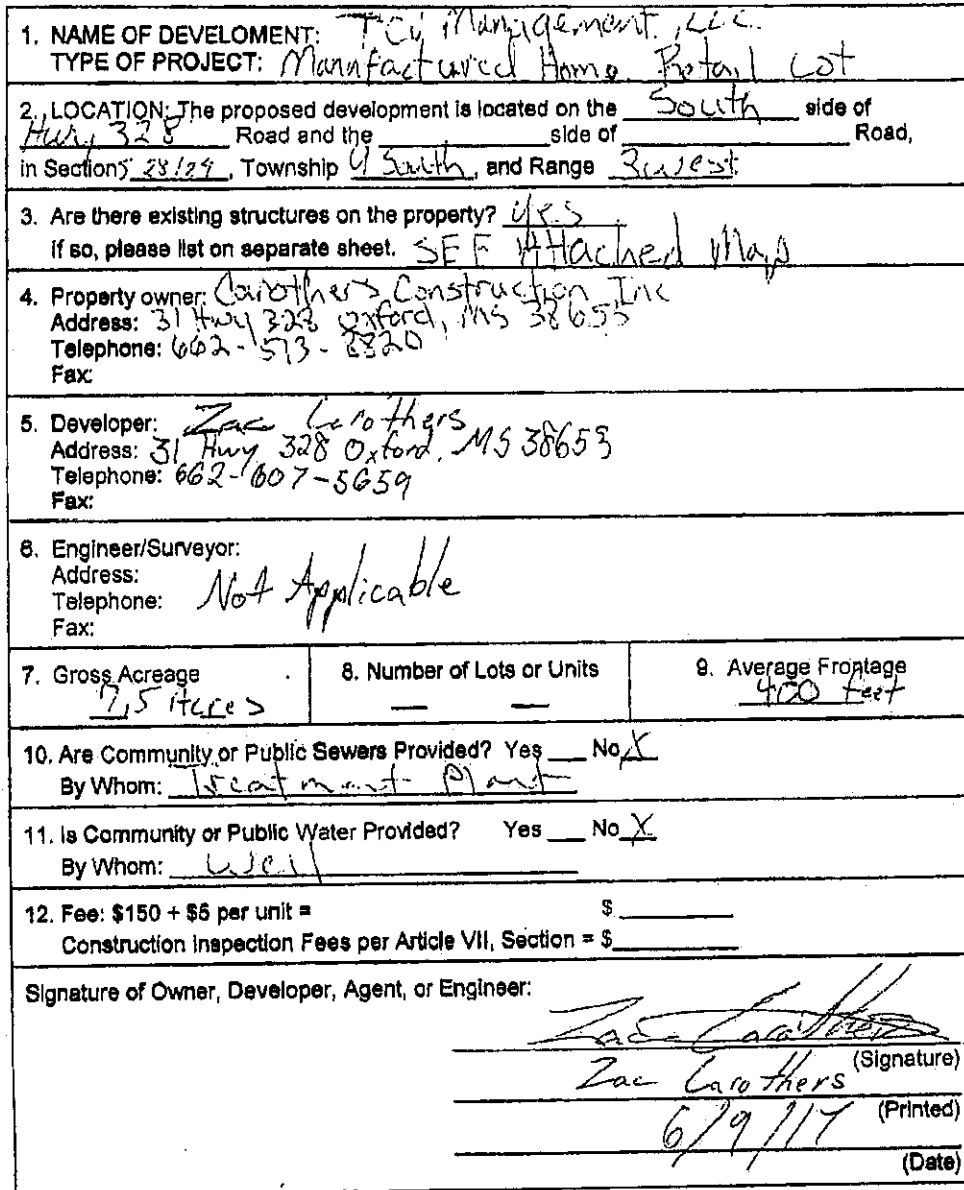 1. NAME OF DEVELOMENT: Management, LLC.
TYPE OF PROJECT: Manufactured Home Retail Lot
2. LOCATION: The proposed development is located on the South side of
Hwy 328 Road and the ____ side of ____ Road,
in Sections 28/29, Township 9 South, and Range 3 West.
3. Are there existing structures on the property? yes
If so, please list on separate sheet. SEE Attached Map
4. Property owner: Carothers Construction Inc
Address: 31 Hwy 328 Oxford, MS 38655
Telephone: 662-513-8820
Fax:
5. Developer: Zac Carothers
Address: 31 Hwy 328 Oxford, MS 38653
Telephone: 662-607-5659
Fax:
6. Engineer/Surveyor:
Address:
Telephone: Not Applicable
Fax:
7. Gross Acreage
7.5 Acres
8. Number of Lots or Units
— —
9. Average Frontage
400 feet
10. Are Community or Public Sewers Provided? Yes ___ No X
By Whom: Treatment Plant
11. Is Community or Public Water Provided? Yes ___ No X
By Whom: Well
12. Fee: $150 + $5 per unit = $ ____
Construction Inspection Fees per Article VII, Section = $ ____
Signature of Owner, Developer, Agent, or Engineer:
Zac Carothers
(Signature)
Zac Carothers
(Printed)
6/9/17
(Date)